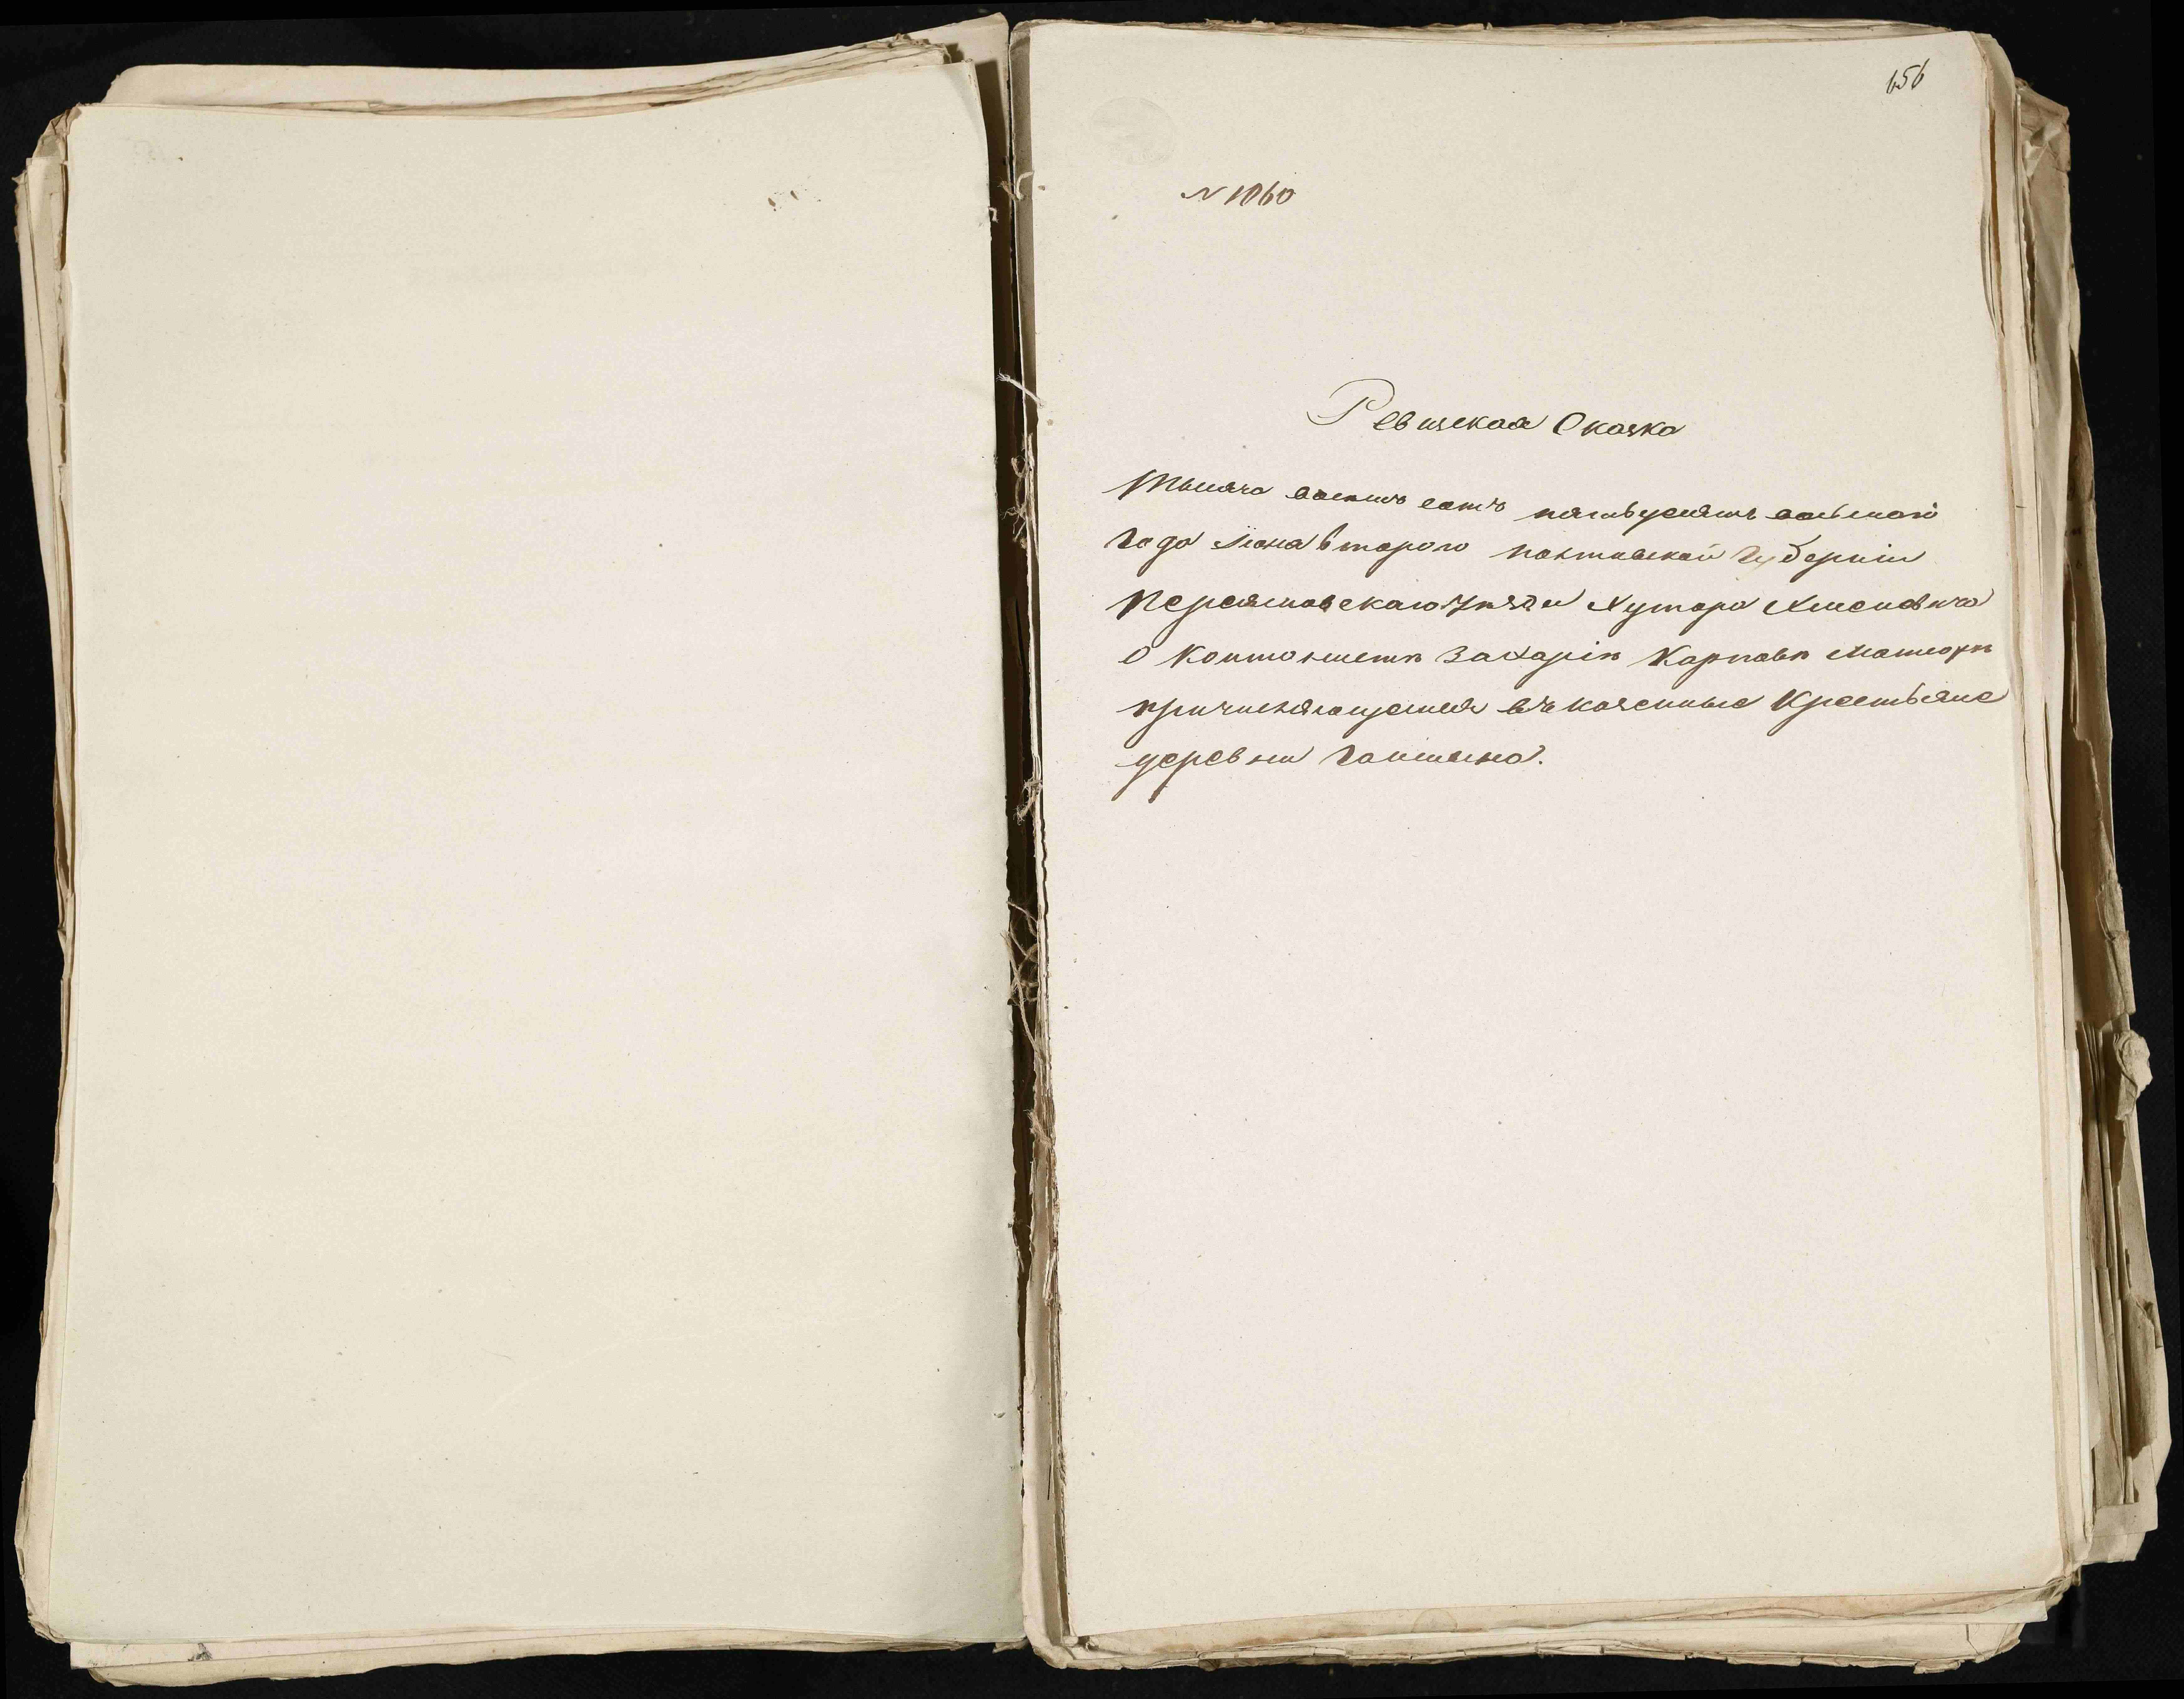 656
N 1060
Ревизская Сказка
Тысяча восемь сотъ пятьдесятъ восьмого
года Мая второго полтавской Губернiи
Переяславскаго уѣзда Хутора
О Кантонистѣ Захарiѣ Карповѣ
причисляющемся въ казенные Крестьяне
деревни